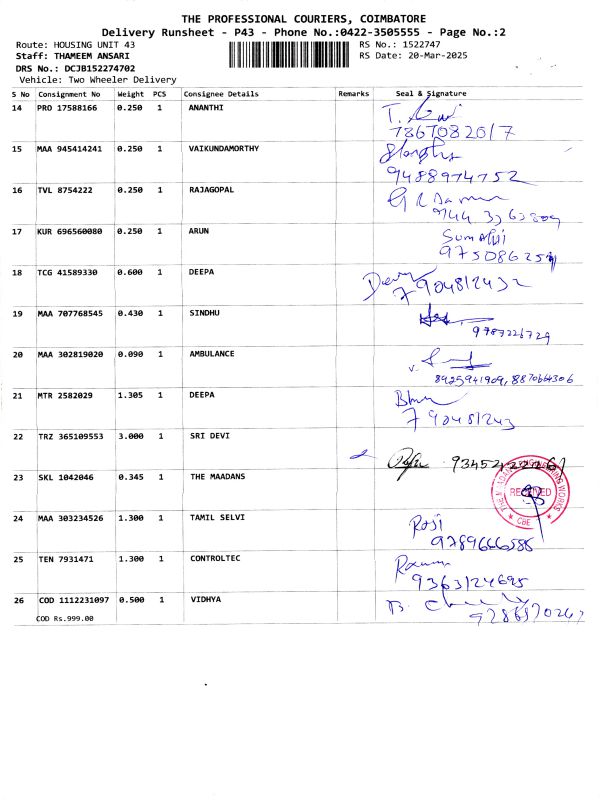 THE PROFESSIONAL COURIERS, COIMBATORE
Delivery Runsheet - P43 - Phone No.:0422-3505555 - Page No.:2
Route: HOUSING UNIT 43 RS No.: 1522747
Staff: THAMEEM ANSARI RS Date: 20-Mar-2025
DRS No.: DCJB152274702
Vehicle: Two Wheeler Delivery
S No Consignment No Weight PCS Consignee Details Remarks Seal & Signature
14 PRO 17588166 0.250 1 ANANTHI
7867082017
15 MAA 945414241 0.250 1 VAIKUNDAMORTHY
9488974752
16 TVL 8754222 0.250 1 RAJAGOPAL
17 KUR 696560080 0.250 1 ARUN
18 TCG 41589330 0.600 1 DEEPA
7904812432
19 MAA 707768545 0.430 1 SINDHU
9787226729
20 MAA 302819020 0.090 1 AMBULANCE
21 MTR 2582029 1.305 1 DEEPA
22 TRZ 365109553 3.000 1 SRI DEVI
23 SKL 1042046 0.345 1 THE MAADANS
RECEIVED
CBE
24 MAA 303234526 1.300 1 TAMIL SELVI
Roji
9789666585
25 TEN 7931471 1.300 1 CONTROLTEC
9363124695
26 COD 1112231097 0.500 1 VIDHYA
COD Rs.999.00